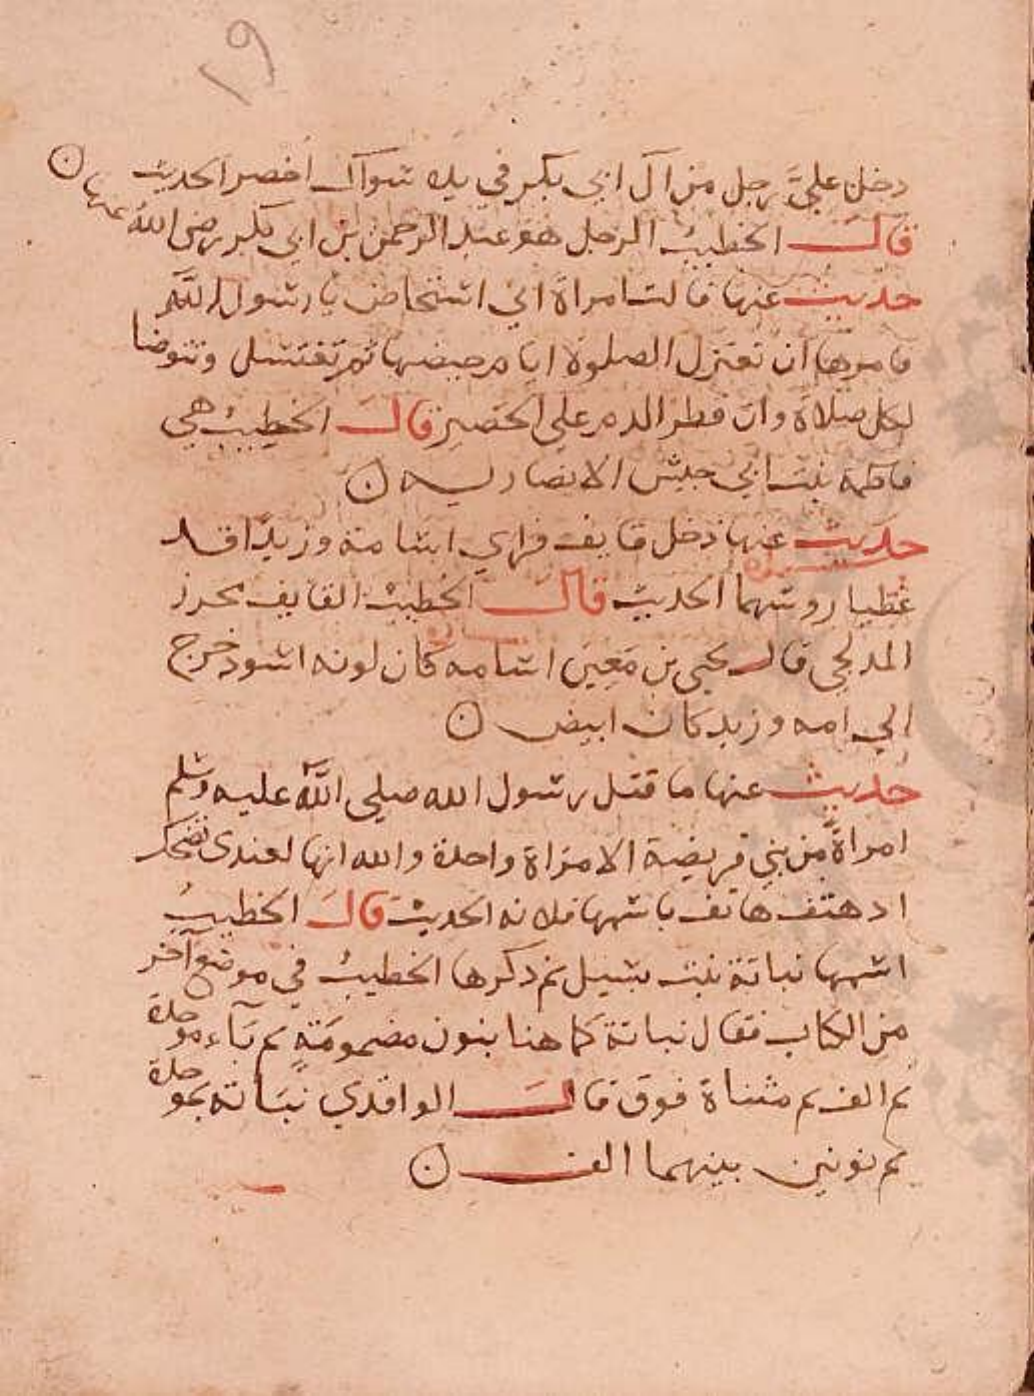 ١٩
دخل علي رجل من آل ابي بكر في يده سواك اخضر الحديث
قال الخطيب الرجل هو عبد الرحمن بن ابي بكر رضي الله عنها
حديث عنها قالت امراة اني استحاض يا رسول الله
فامرها ان تعتزل الصلوة ايام حيضها ثم تغتسل وتتوضا
لكل صلاة وان قطر الدم على الحصير قال الخطيب هي
فاطمة بنت ابي حبيش الانصارية
حديث عنها دخل قايف فراي اسامة وزيدا قد
غطيا روسهما الحديث قال الخطيب القايف محرز
المدلجي قال يحيى بن معين اسامه كان لونه اسود خرج
الي امه وزيد كان ابيض
حديث عنها ما قتل رسول الله صلى الله عليه وسلم
امراة من بني قريضة الا مراة واحدة والله انها لعندى تضحك
اد هتف هاتف باسمها فلانه الحديث قال الخطيب
اسمها نباتة بنت بسيل ثم دكرها الخطيب في موضع آخر
من الكاب فقال نباتة كما هنا بنون مضمومة ثم بآء موحدة
ثم الف ثم مثناة فوق قال الواقدي نباته بموحدة
ثم نونين بينهما الف